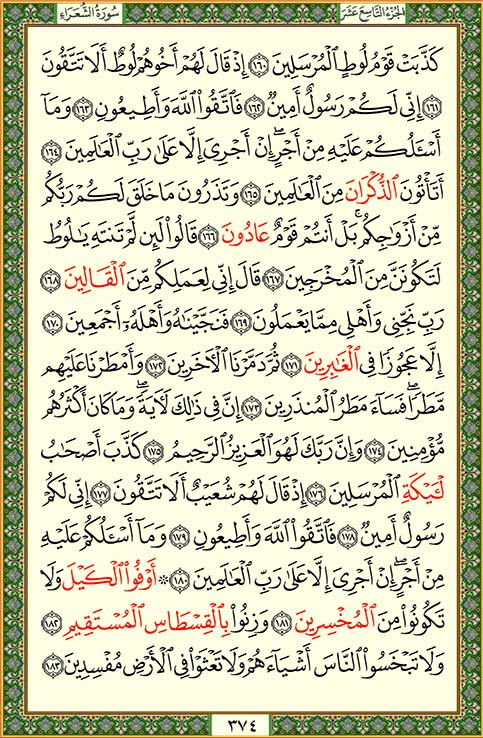 سُورَةُ الشُّعَرَاءِ الجُزْءُ التَّاسِعَ عَشَرَ
كَذَّبَتْ قَوْمُ لُوطٍ ٱلْمُرْسَلِينَ ١٦٠ إِذْ قَالَ لَهُمْ أَخُوهُمْ لُوطٌ أَلَا تَتَّقُونَ
١٦١ إِنِّي لَكُمْ رَسُولٌ أَمِينٌ ١٦٢ فَٱتَّقُوا۟ ٱللَّهَ وَأَطِيعُونِ ١٦٣ وَمَآ
أَسْـَٔلُكُمْ عَلَيْهِ مِنْ أَجْرٍ ۖ إِنْ أَجْرِىَ إِلَّا عَلَىٰ رَبِّ ٱلْعَـٰلَمِينَ ١٦٤
أَتَأْتُونَ ٱلذُّكْرَانَ مِنَ ٱلْعَـٰلَمِينَ ١٦٥ وَتَذَرُونَ مَا خَلَقَ لَكُمْ رَبُّكُم
مِّنْ أَزْوَٰجِكُم ۚ بَلْ أَنتُمْ قَوْمٌ عَادُونَ ١٦٦ قَالُوا۟ لَئِن لَّمْ تَنتَهِ يَـٰلُوطُ
لَتَكُونَنَّ مِنَ ٱلْمُخْرَجِينَ ١٦٧ قَالَ إِنِّى لِعَمَلِكُم مِّنَ ٱلْقَالِينَ ١٦٨
رَبِّ نَجِّنِى وَأَهْلِى مِمَّا يَعْمَلُونَ ١٦٩ فَنَجَّيْنَـٰهُ وَأَهْلَهُۥٓ أَجْمَعِينَ ١٧٠
إِلَّا عَجُوزًا فِى ٱلْغَـٰبِرِينَ ١٧١ ثُمَّ دَمَّرْنَا ٱلْـَٔاخَرِينَ ١٧٢ وَأَمْطَرْنَا عَلَيْهِم
مَّطَرًا ۖ فَسَآءَ مَطَرُ ٱلْمُنذَرِينَ ١٧٣ إِنَّ فِى ذَٰلِكَ لَـَٔايَةً ۖ وَمَا كَانَ أَكْثَرُهُم
مُّؤْمِنِينَ ١٧٤ وَإِنَّ رَبَّكَ لَهُوَ ٱلْعَزِيزُ ٱلرَّحِيمُ ١٧٥ كَذَّبَ أَصْحَـٰبُ
لْـَٔيْكَةِ ٱلْمُرْسَلِينَ ١٧٦ إِذْ قَالَ لَهُمْ شُعَيْبٌ أَلَا تَتَّقُونَ ١٧٧ إِنِّى لَكُمْ
رَسُولٌ أَمِينٌ ١٧٨ فَٱتَّقُوا۟ ٱللَّهَ وَأَطِيعُونِ ١٧٩ وَمَآ أَسْـَٔلُكُمْ عَلَيْهِ
مِنْ أَجْرٍ ۖ إِنْ أَجْرِىَ إِلَّا عَلَىٰ رَبِّ ٱلْعَـٰلَمِينَ ١٨٠ ۞ أَوْفُوا۟ ٱلْكَيْلَ وَلَا
تَكُونُوا۟ مِنَ ٱلْمُخْسِرِينَ ١٨١ وَزِنُوا۟ بِٱلْقِسْطَاسِ ٱلْمُسْتَقِيمِ ١٨٢
وَلَا تَبْخَسُوا۟ ٱلنَّاسَ أَشْيَآءَهُمْ وَلَا تَعْثَوْا۟ فِى ٱلْأَرْضِ مُفْسِدِينَ ١٨٣
٣٧٤